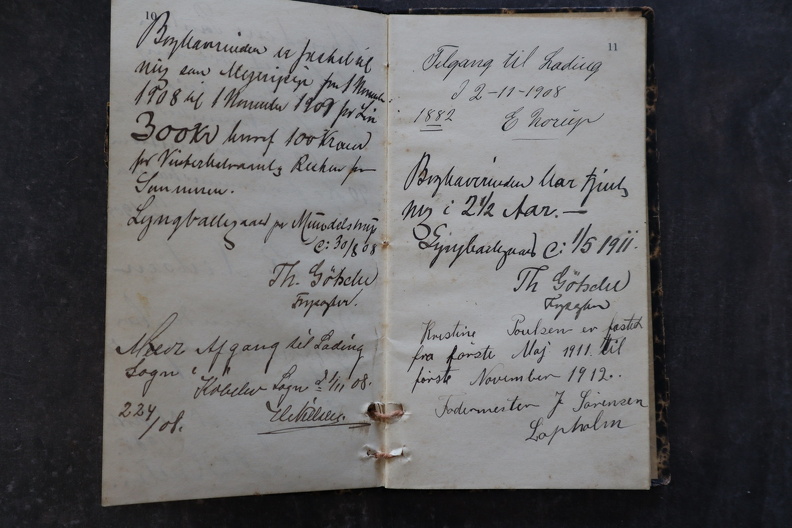 10
Boghaverinden er fæstet til
mig som Mejeripige fra 1 November
1908 til 1 November 1909 for Løn
300 Kr hvoraf 100 Kroner
for Vinterhalvaaret & Resten for
Sommeren.
Lyngballegaard pr Mundelstrup
d: 30/8 08
Th. Götsche
Forpagter.
Afgang til Lading
Sogn
Sogn d 1/11 08.
224
/08.
11
Tilgang til Lading
d 2-11-1908
1882
E Norup
Boghaverinden har tjent
mig i 2 1/2 Aar. —
Lyngballegaard d: 1/5 1911.
Th Götsche
Forpagter
Kristine Poulsen er fæstet
fra første Maj 1911 til
første November 1912.
Fodermester J Sørensen
Lapholm